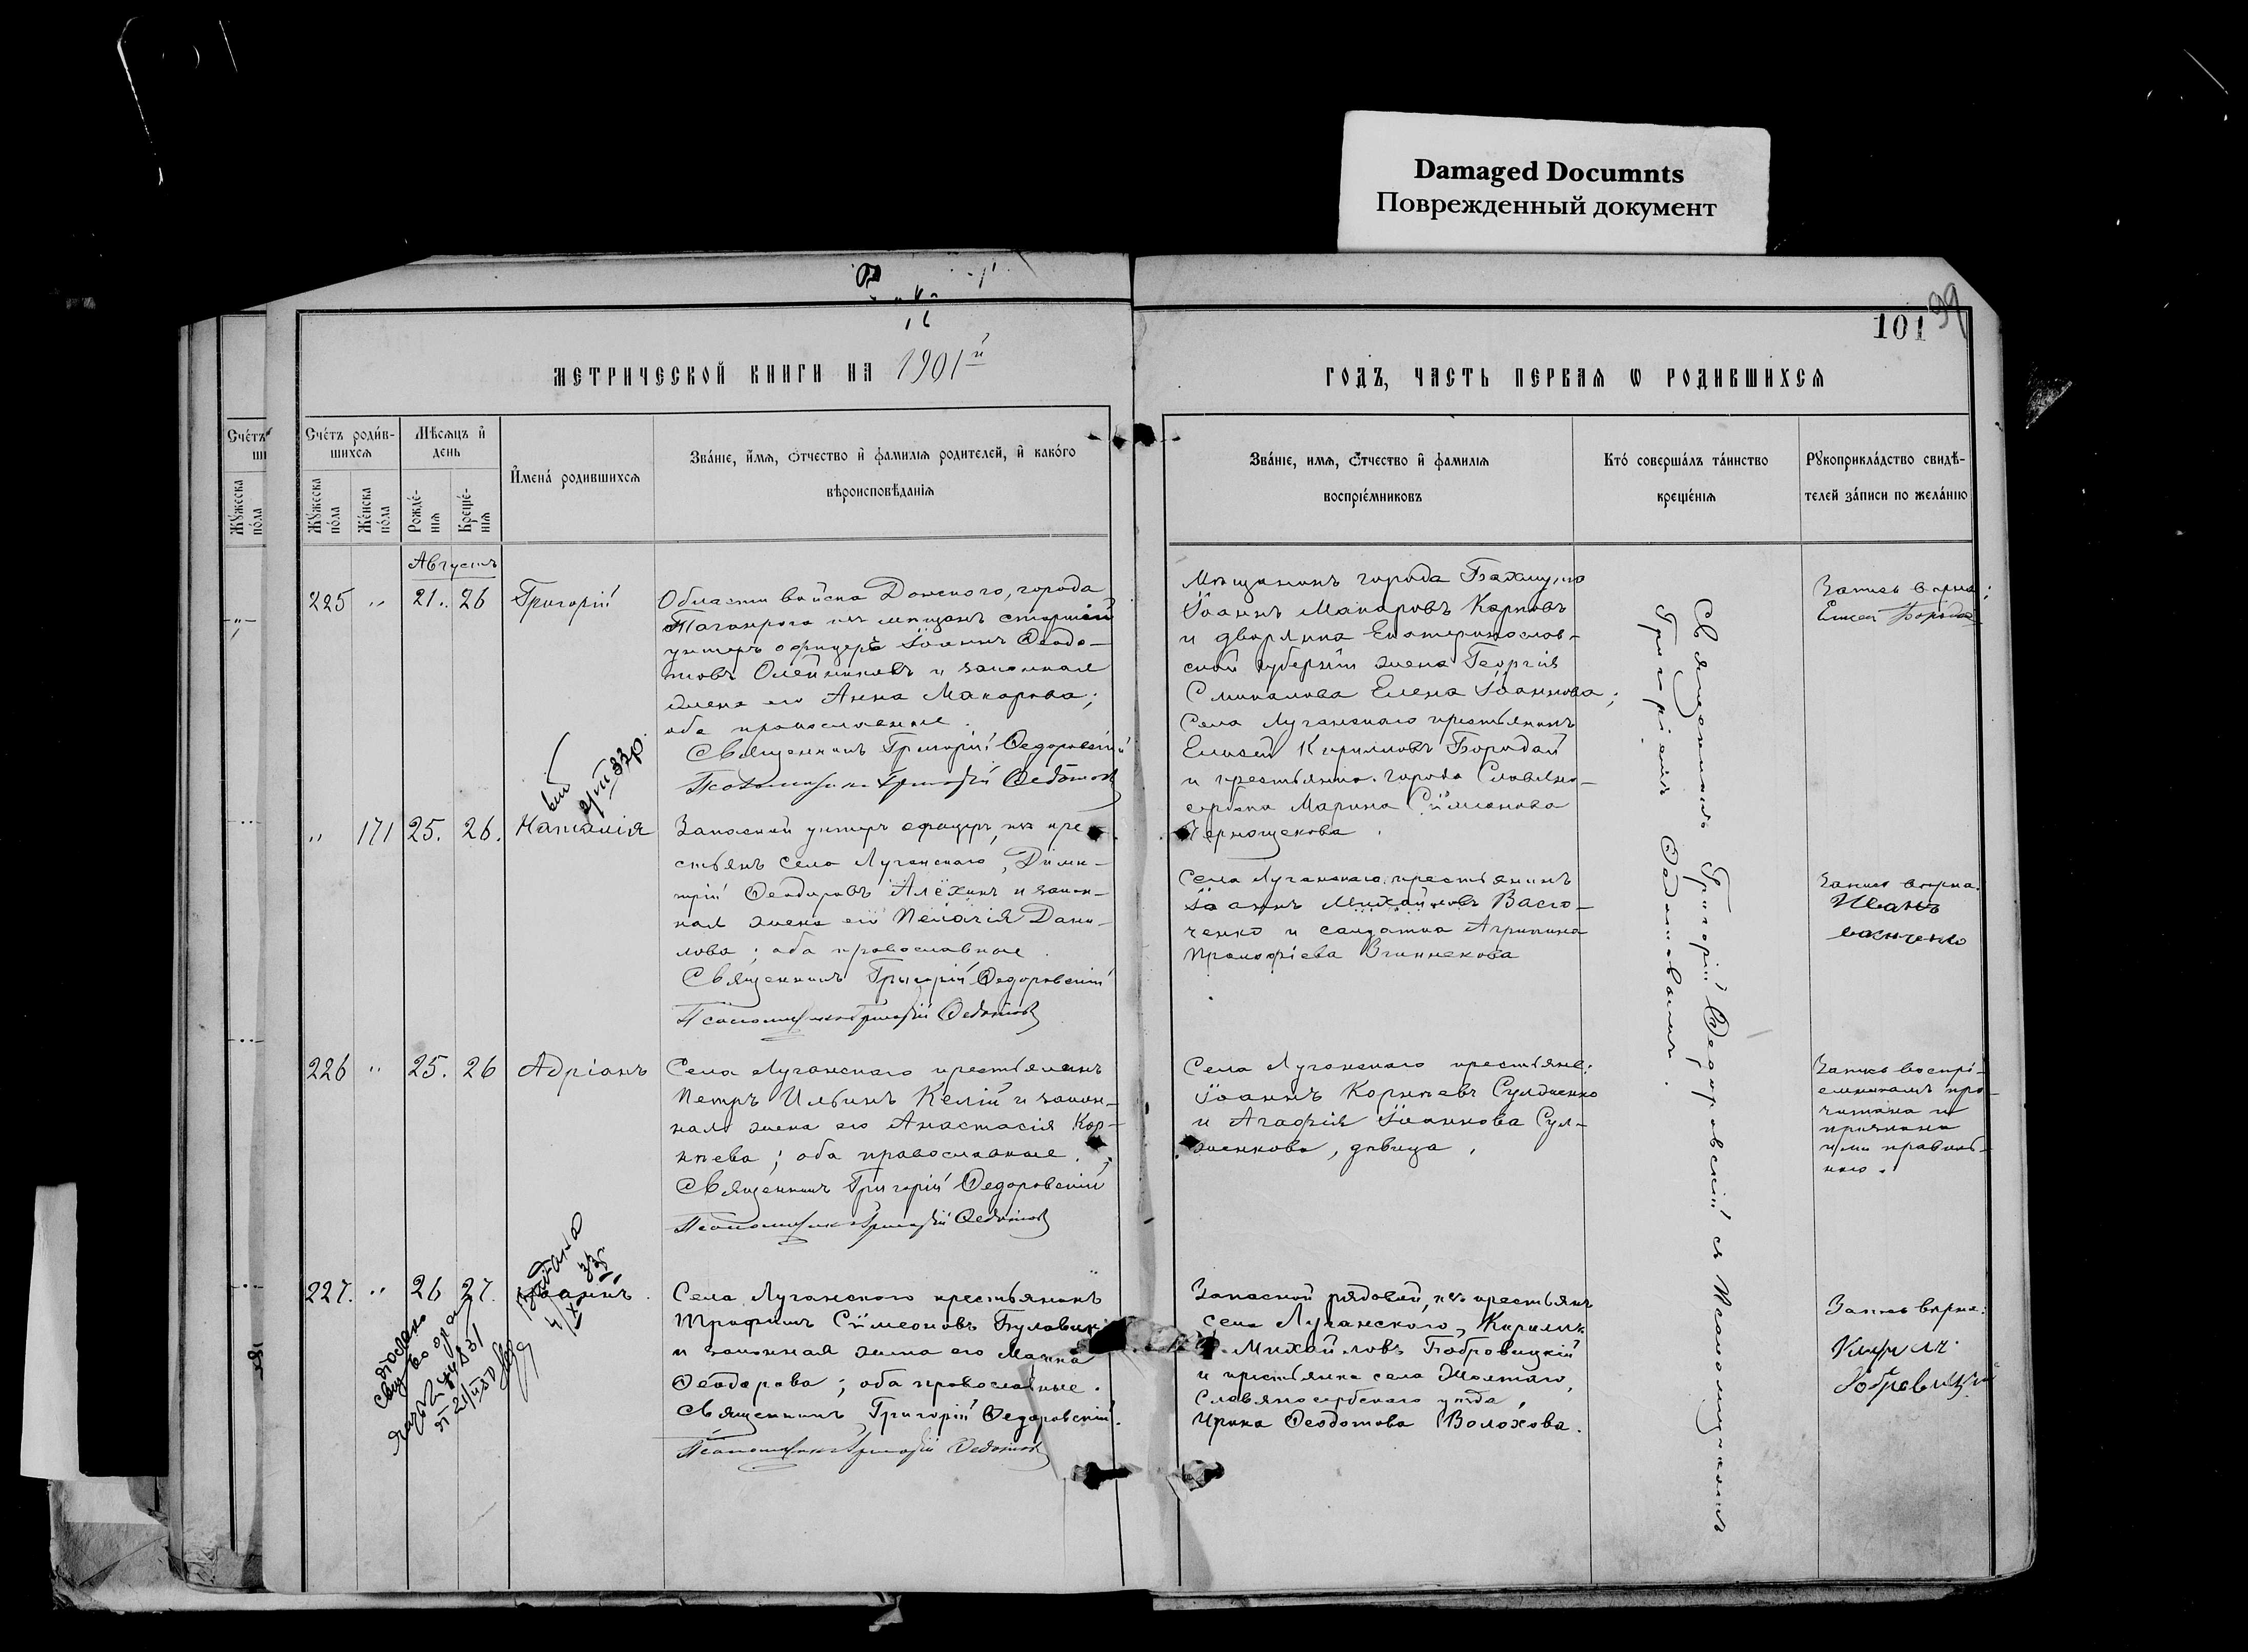 Damaged Documnts
Поврежденный документ
101
99
МЕТРИЧЕСКОЙ КНИГИ НА 1901й
ГОДЪ, ЧАСТЬ ПЕРВАЯ Ѡ РОДИВШИХСЯ
Счетъ родив-
шихся
Мѣсяцъ и
день
Мужеска
пола
Женска
пола
Рожде-
нія
Креще-
нія
Имена родившихся
Званіе, имя, отчество и фамилія родителей, и какого
вѣроисповѣданія
Званіе, имя, отчество и фамилія
воспріемниковъ
Кто совершалъ таинство
крещенія
Рукоприкладство свидѣ-
телей записи по желанію
Августъ
225 " 21. 26 Григорій
Области войска Донского, города
Таганрога изъ мѣщанъ старшій
унтеръ офицеръ Іоаннъ Ѳеодо-
товъ Олейниковъ и законная
жена его Анна Макарова;
оба православные.
Священникъ Григорій Ѳедоровскій
Псаломщикъ Григорій Ѳедотов
Мѣщанинъ города Бахмута
Іоаннъ Макаровъ Карповъ
и дворянина Екатеринослав-
ской губерніи жена Георгія
Елена Іоаннова;
Села Луганскаго крестьянинъ
Елисей Кириловъ Бородай
и крестьянка города Славяно-
сербска Марина Сѵмеонова
Чернощекова.
Запись вѣрна;
Елисей Бородай
" 171 25. 26. Наталія
Запасный унтеръ офицеръ, изъ кре-
стьянъ села Луганскаго, Дими-
трій Ѳеодоровъ Алёхинъ и закон-
ная жена его Пелагія Дани-
лова; оба православные.
Священникъ Григорій Ѳедоровскій
Псаломщикъ Григорій Ѳедотов
Села Луганскаго крестьянинъ
Іоаннъ Михайловъ Васю-
ченко и солдатка Агрипина
Прокофіева
Запись вѣрна.
Иванъ
226 " 25. 26 Адріанъ
Села Луганскаго крестьянинъ
Петръ Ильинъ Келій и закон-
ная жена его Анастасія Кор-
нѣева; оба православные.
Священникъ Григорій Ѳедоровскій
Псаломщикъ Григорій Ѳедотов
Села Луганскаго крестьяне:
Іоаннъ Корнѣевъ Сулженко
и Агафія Іоаннова Сул-
женкова, дѣвица.
Запись воспрі-
емникамъ про-
читана и
признана
ими правиль-
ною.
227. " 26 27. Іоаннъ.
Села Луганского крестьянинъ
Трофимъ Сѵмеоновъ
и законная жена его
Ѳеодорова; оба православные.
Священникъ Григорій Ѳедоровскій.
Псаломщикъ Григорій Ѳедотов
Запасной рядовой, изъ крестьянъ
села Луганского, Кириллъ
Михайловъ Бобровицкій
и крестьянка села Жолтаго,
Славяносербскаго уѣзда,
Ирина Ѳеодотова Волохова.
Запись вѣрна:
Священникъ Григорій Ѳедоровскій съ Псаломщикомъ
Григоріемъ Ѳедотовымъ.